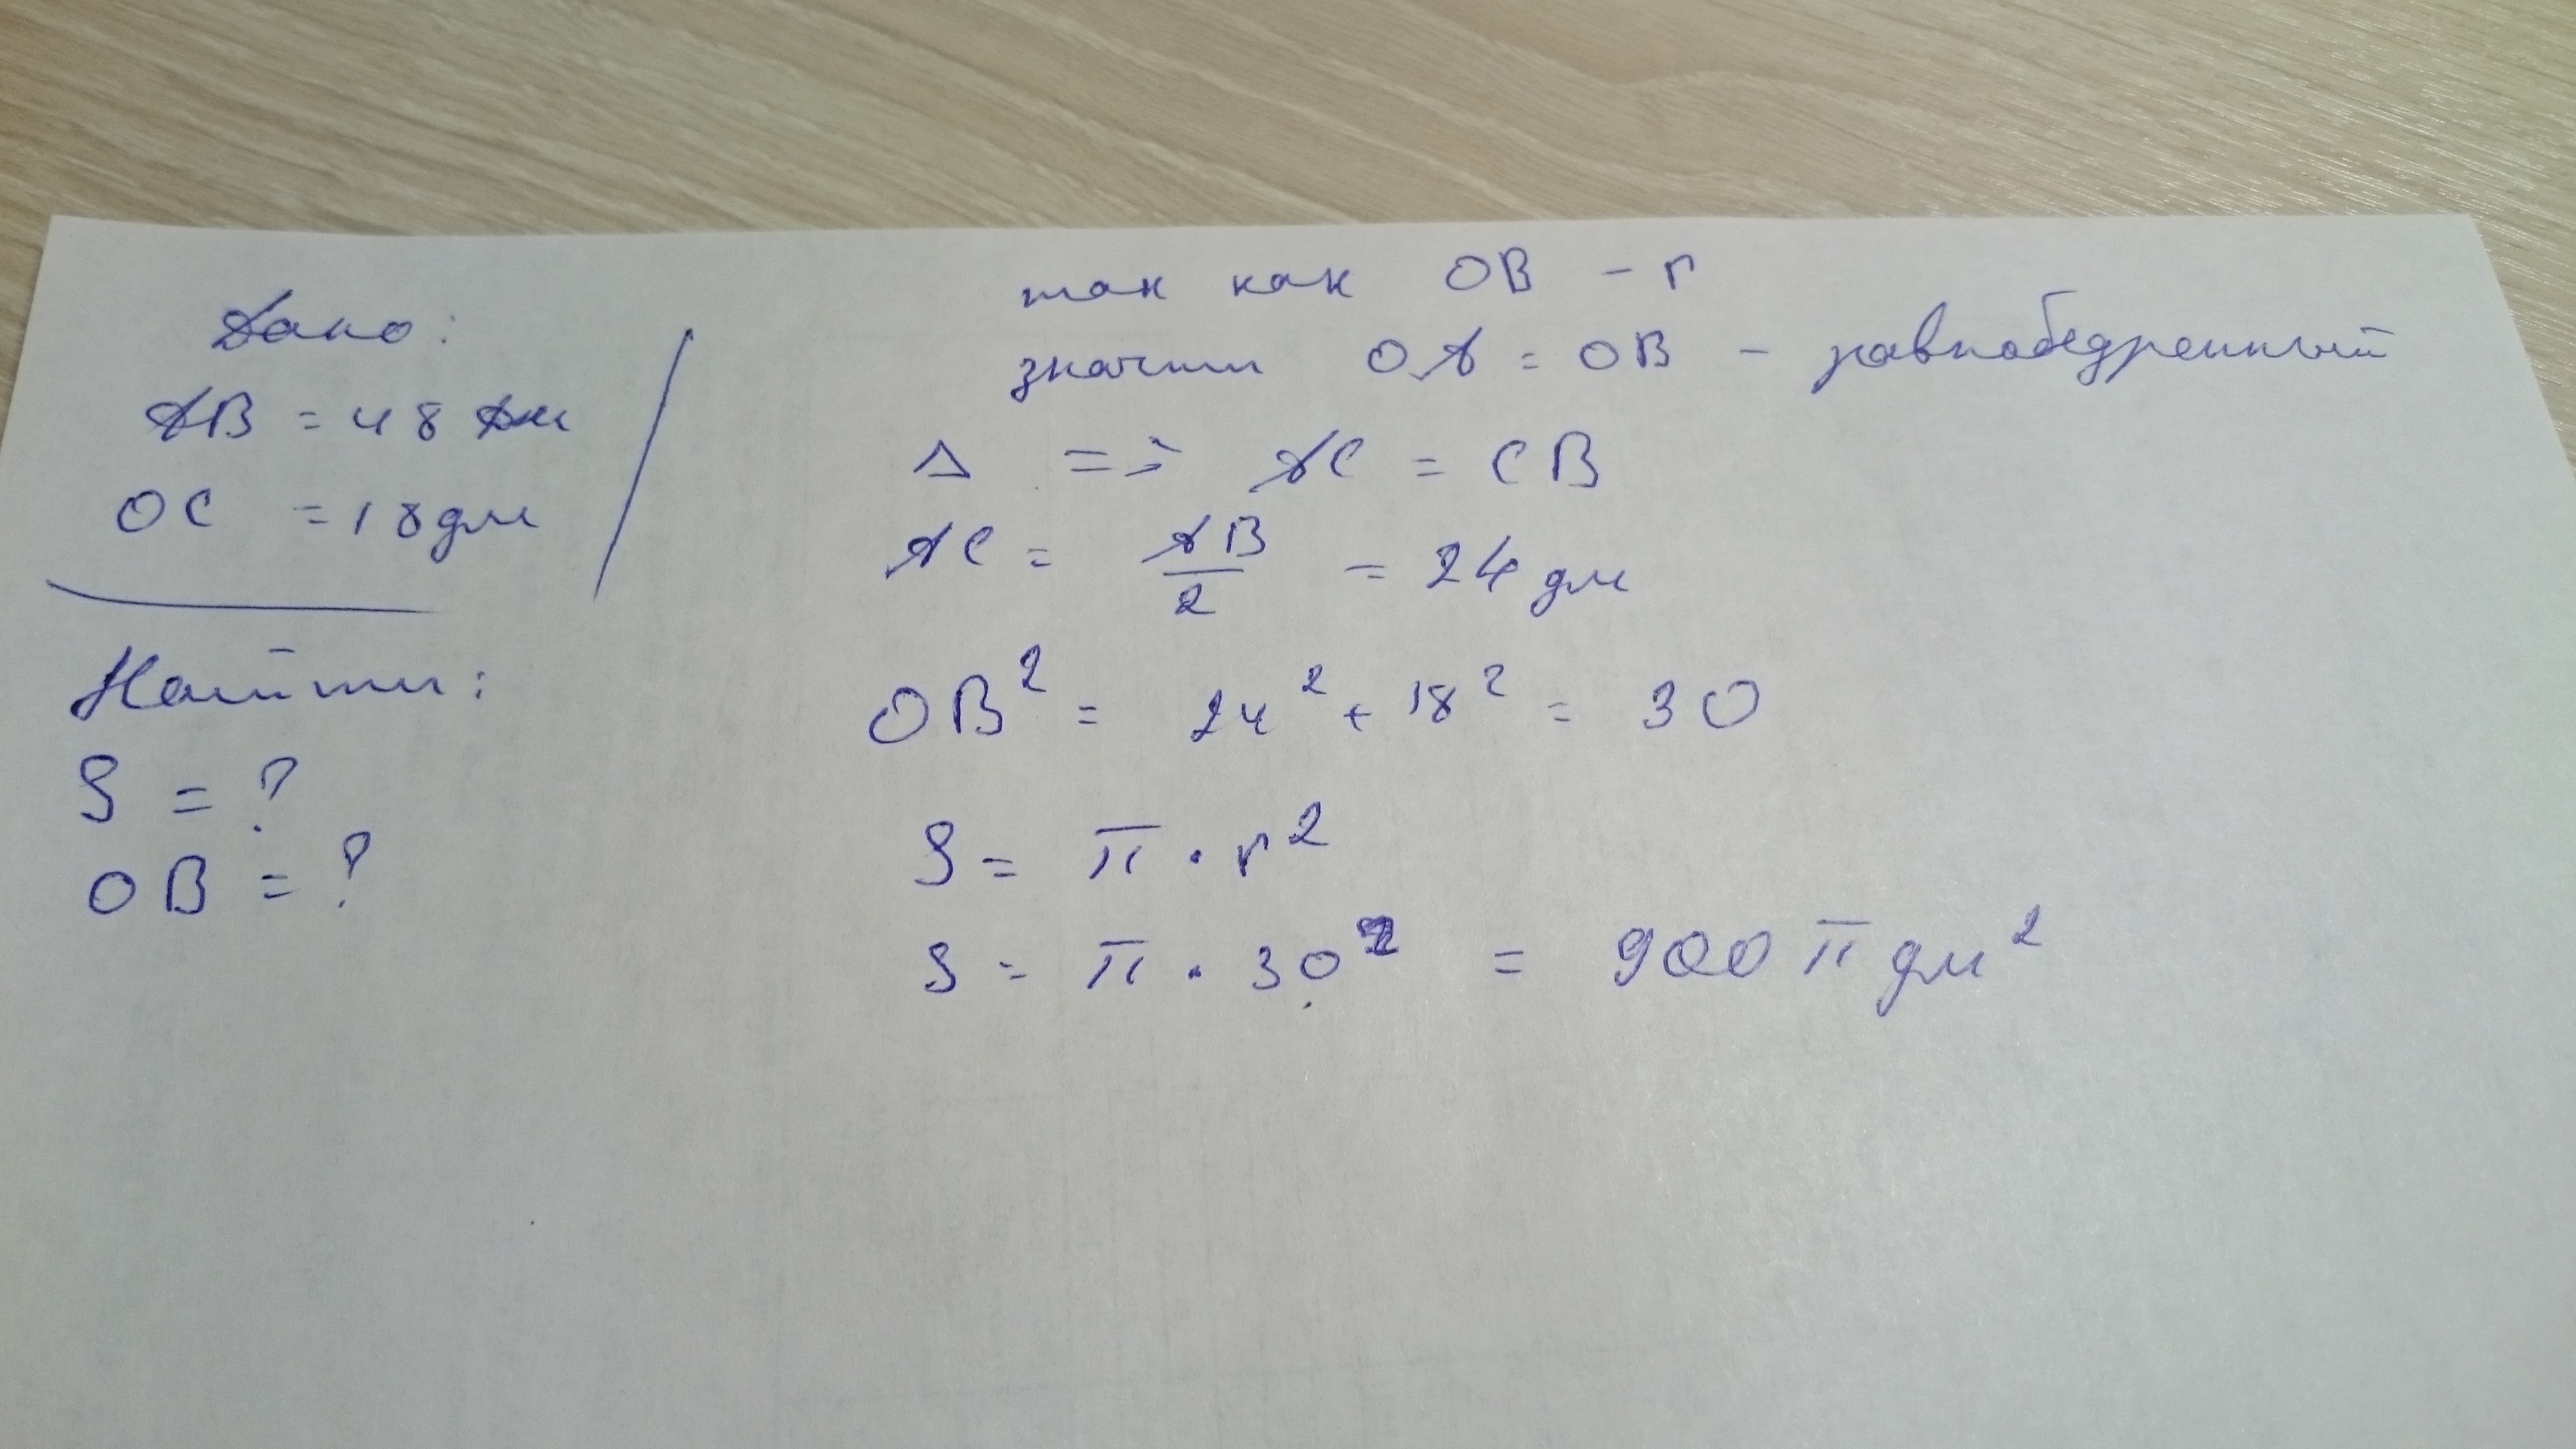 Дано:
AB = 48 дм
OC = 18 дм
Найти:
S = ?
OB = ?
так как OB - r
значит OA = OB - равнобедренный
Δ => AC = CB
AC = AB/2 = 24 дм
OB² = 24² + 18² = 30
S = π · r²
S = π · 30² = 900 π дм²